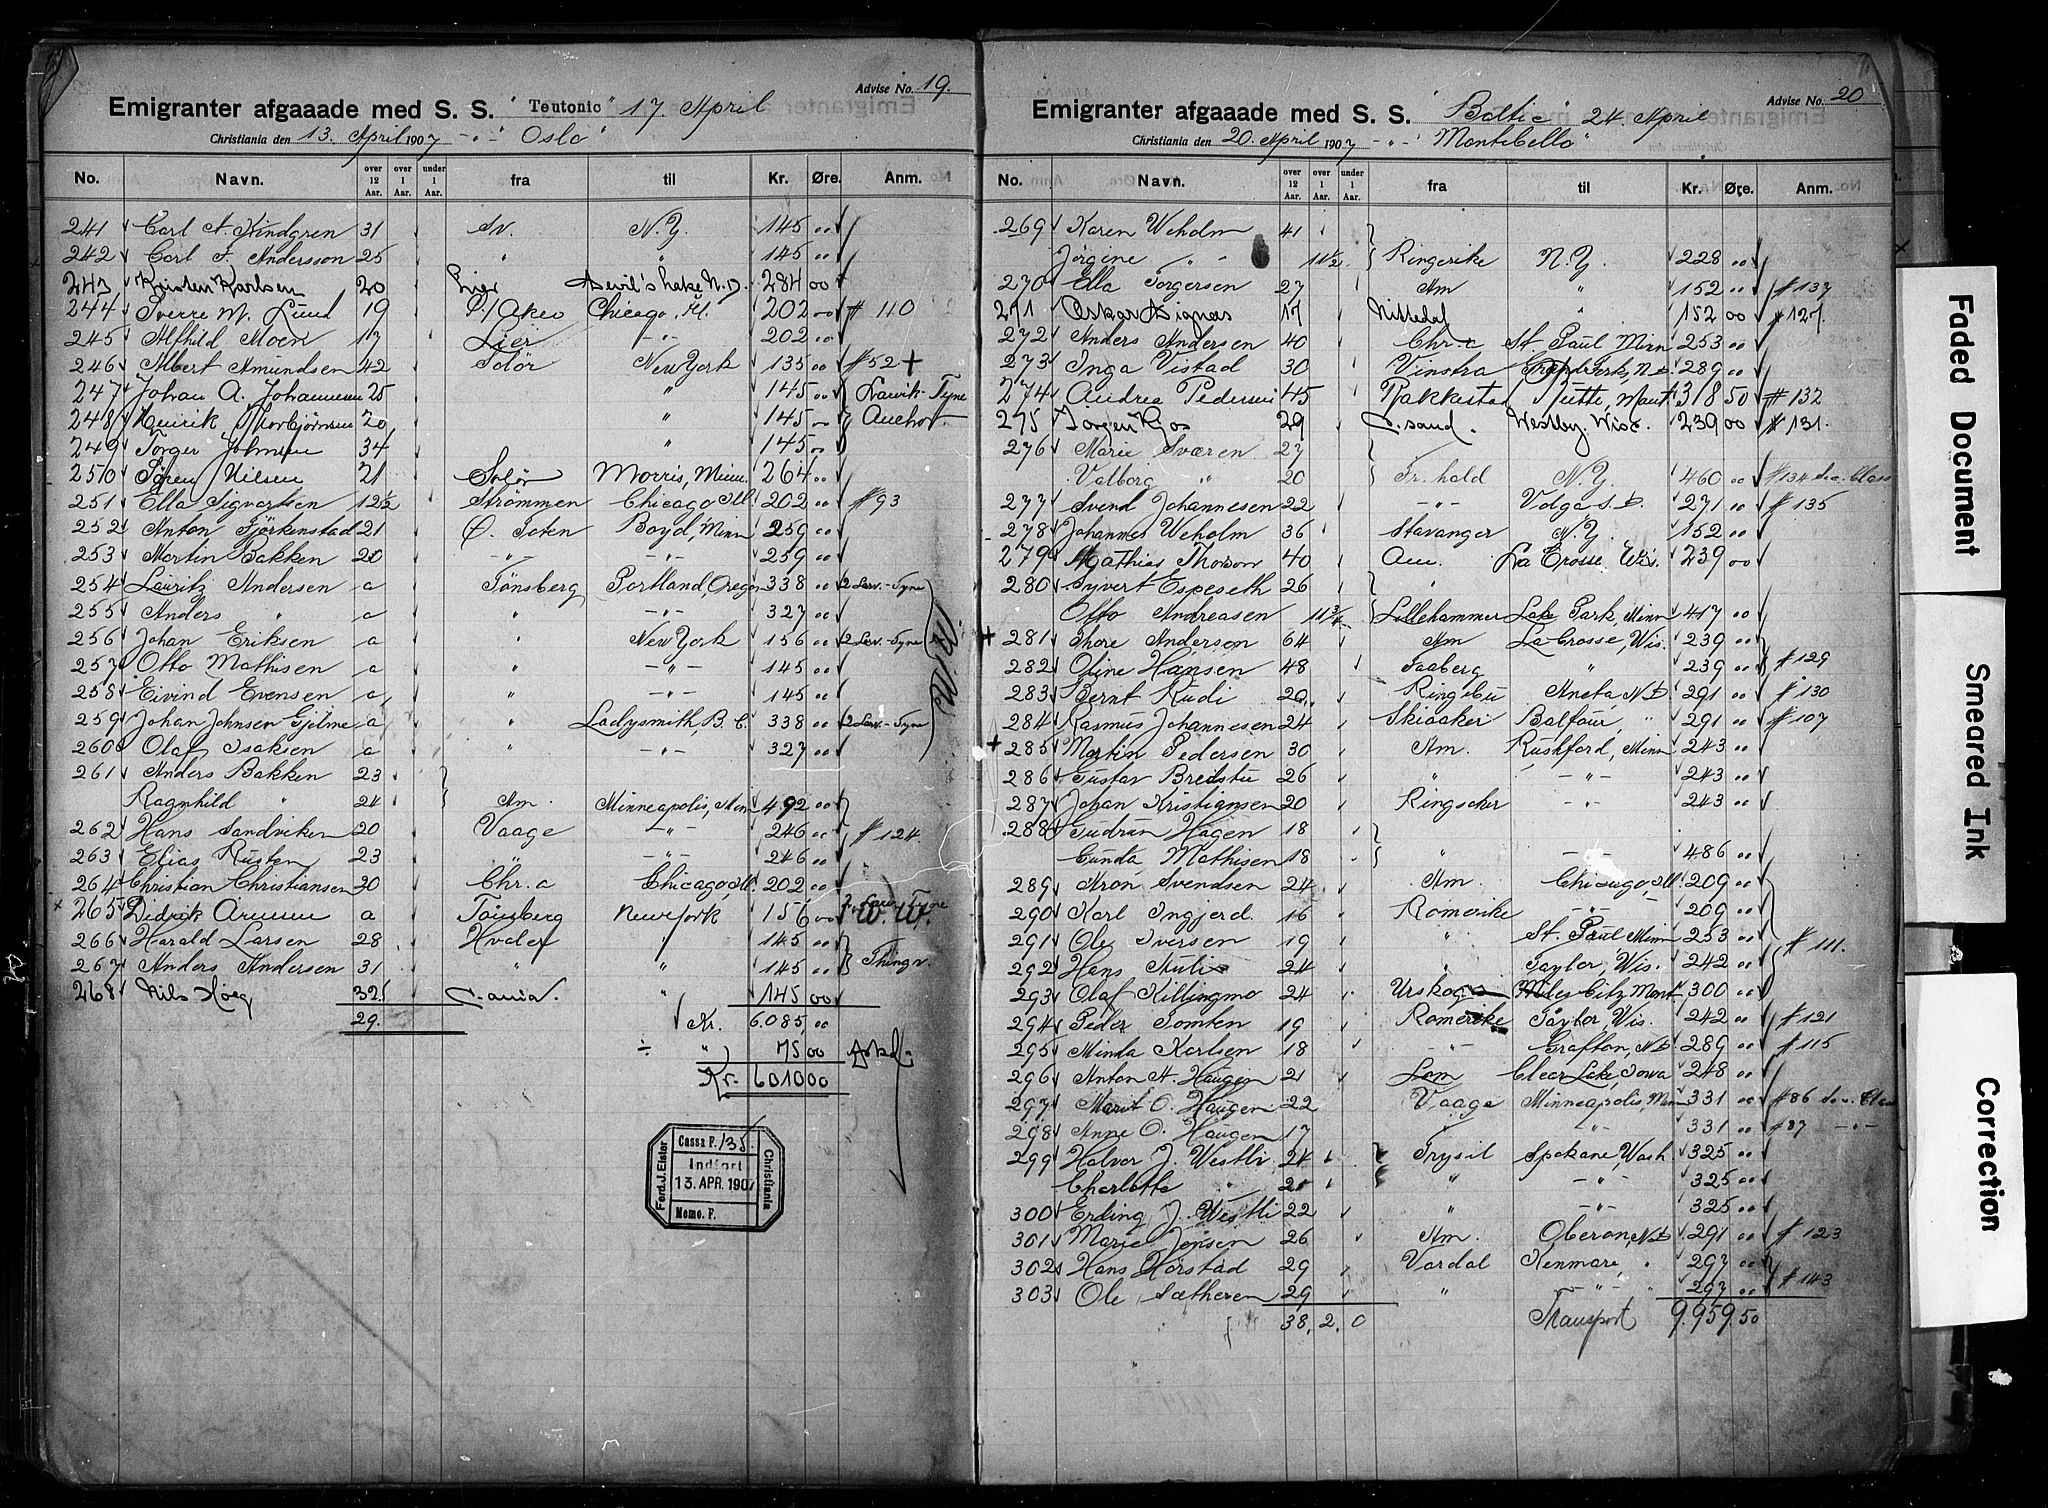 Advise No. 19.
Emigranter afgaaade med S. S. "Teutonic" 17. April
Christiania den 13. April 1907 -"- "Oslo"
No. Navn. over 12 Aar. over 1 Aar. under 1 Aar. fra til Kr. Øre. Anm.
241 Carl A. Kindgren 31 Sv. N.Y. 145 00
242 Carl F. Andersson 25 " " 145 00
243 Kristen Karlsen 20 Lier Devil's Lake N.D. 284 00
244 Sverre M. Lund 19 Ø/Aker Chicago, Ill. 202 00 # 110
245 Alfhild Moen 17 Lier -"- 202 00
246 Albert Amundsen 42 Solør New York 135 00 # 52 +
247 Johan A. Johannesen 25 " 145 00 Larvik-Tyne
248 Henrik Thorbjørnsen 20 " 145 00 Anchor.
249 Torger Johnsen 34 " 145 00
250 Søren Nilsen 21 Solør Morris, Minn. 264 00
251 Ella Sigvartsen 12½ Strømmen Chicago Ill. 202 00 # 93
252 Anton Fjørkenstad 21 Ø. Toten Boyd, Minn 259 00
253 Martin Bakken 20 -"- -"- 259 00
254 Lauritz Andersen a Tönsberg Portland, Oregon 338 00 2 Larv.-Tyne
255 Anders " a -"- 327 00
256 Johan Eriksen a " New York 156 00 2 Larv.-Tyne
257 Otto Mathisen a " -"- 145 00
258 Eivind Evensen a " -"- 145 00
259 Johan Johnsen Gjelme a " Ladysmith, B.C. 338 00 2 Larv.-Tyne
260 Olaf Isaksen a " -"- 327 00
261 Anders Bakken 23
Ragnhild " 24 Am. Minneapolis, Minn 492 00
262 Hans Sandviken 20 Vaage -"- 246 00 # 124
263 Elias Rusten 23 -"- 246 00
264 Christian Christiansen 30 Chr.a Chicago, Ill. 202 00
265 Didrik Arnesen a Tönsberg New York 156 00 2. Larv. Tyne
266 Harald Larsen 28 Hvaler " 145 00
267 Anders Andersen 31 " " 145 00 Thingv.
268 Nils Høeg 32 " 145 00
29. Kr. 6.085,00
÷ " 75 00
Kr. 6010 00
Cassa F. 135.
Indført
13 APR. 1907
Memo. F.
Ferd. J. Elster
Christiania
Advise No. 20
Emigranter afgaaade med S. S. "Baltic" 24. April
Christiania den 20. April 1907 -"- "Montebello"
No. Navn. over 12 Aar. over 1 Aar. under 1 Aar. fra til Kr. Øre. Anm.
269 Karen Weholm 41
Jörgine " 11½ Ringerike N.Y. 228 00
270 Ella Torgersen 27 Am " 152 00 # 137
271 Oskar Signæs 17 Nittedal " 152 00 # 127.
272 Anders Andersen 40 Chr.a St Paul Minn 253 00
273 Inga Vistad 30 Vinstra Grand Forks, N.D. 289 00
274 Andrea Pedersen 45 Rakkestad Butte, Mont 318 50 # 132
275 Jörgen Kjos 29 Westby. Wisc. 239 00 # 131.
276 Marie Sværen 27
Valborg " 20 Fr.hald N.Y. 460 00 # 134 Sec. Class
277 Svend Johannesen 22 -"- Volga S.D. 271 00 # 135
278 Johannes Weholm 36 Stavanger N.Y. 152 00
279 Mathias Thorson 40 Am. La Crosse, Wis. 239 00
280 Syvert Espeseth 26 "
Otto Andreasen 11¾ Lillehammer Lake Park, Minn 417 00
281 Thore Anderson 64 Am La Crosse, Wis. 239 00
282 Oline Hansen 48 Faaberg " 239 00 # 129
283 Bernt Rudi 20 Ringebu Aneta, N.D 291 00 # 130
284 Rasmus Johannesen 24 Skiaaker Balfour, " 291 00 # 107
285 Martin Pedersen 30 Am. Rushford, Minn 243 00
286 Gustav Bredstu 26 " -"- 243 00
287 Johan Kristiansen 20 Ringsaker -"- 243 00
288 Gudrun Hagen 18
Gunda Mathisen 18 " -"- 486 00
289 Aron Svendsen 24 Am. Chicago, Ill. 209 00
290 Karl Ingjerd. 16 Romerike -"- 209 00
291 Ole Iversen 19 " St. Paul Minn 253 00 # 111.
292 Hans Auli 24 " Taylor, Wis. 242 00
293 Olaf Killingmo 24 Urskog Miles City Mont 300 00
294 Peder Tomten 19 Romerike Taylor, Wis. 242 00 # 121
295 Minda Karlsen 18 -"- Grafton, N.D 289 00 # 115
296 Anton A. Haugen 21 Lom Clear Lake, Iowa 248 00
297 Marit O. Haugen 22 Vaage Minneapolis, Minn 331 00 # 86 Sec. Class
298 Anne O. Haugen 17 " -"- 331 00 # 87 -"-
299 Halvor J. Westli 24 Trysil Spokane, Wash 325 00
Charlotte " 21 " -"- 325 00
300 Erling J. Westli 22 " -"- 325 00
301 Marie Jensen 26 Am. Oberon, N.D 291 00 # 123
302 Hans Hörstad 29 Vardal Kenmare, " 297 00
303 Ole Sætheren 29 " -"- " 297 00 # 143
38. 2. 0 Transport 9.959.50
Faded Document
Smeared Ink
Correction